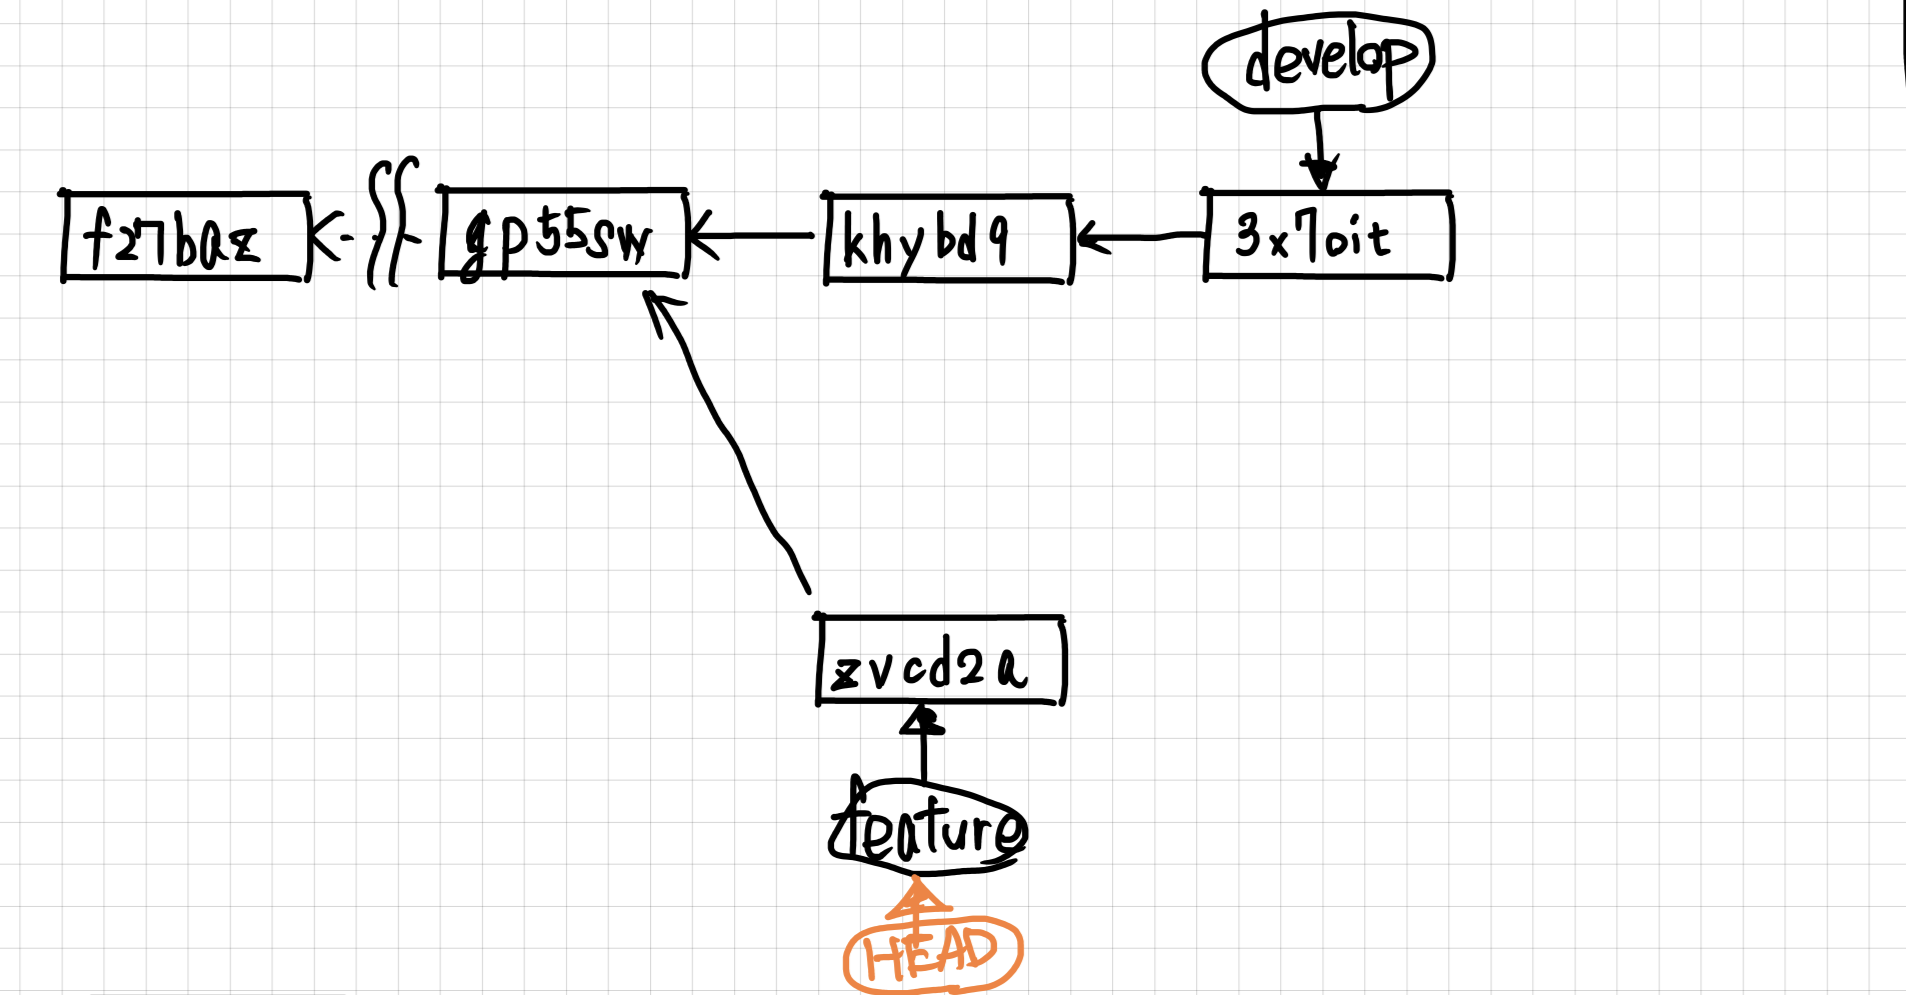 develop
f27baz
gp55sw
khybd9
3x7oit
zvcd2a
feature
HEAD